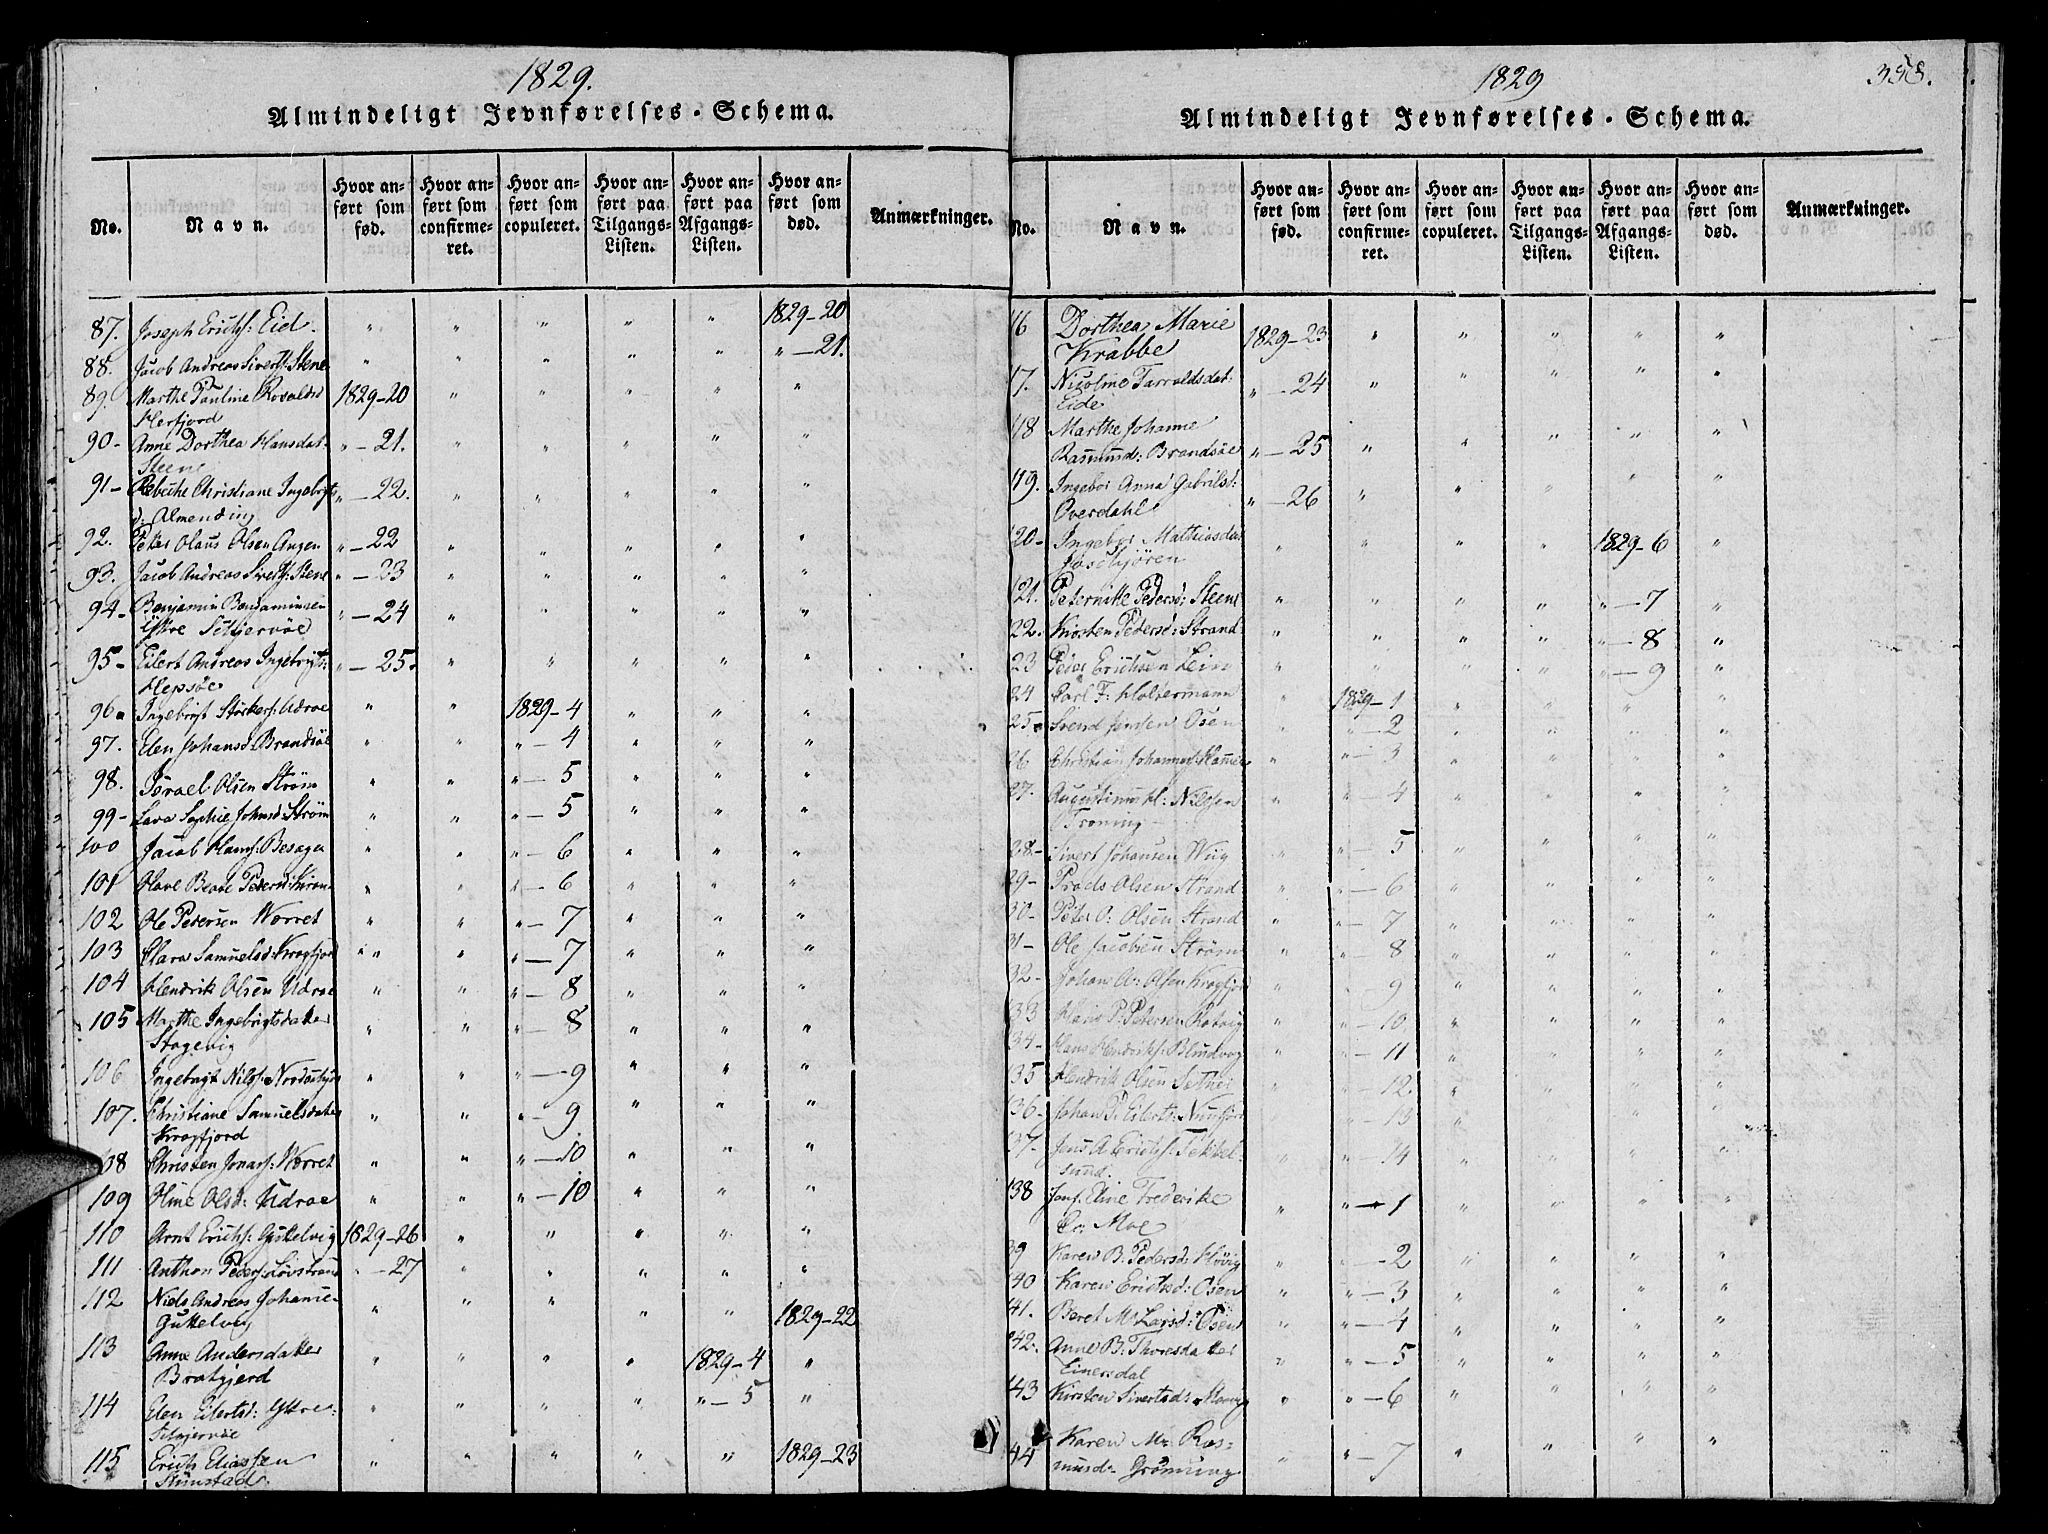 1829.
Almindeligt Jevnførelses-Schema.
No.
Navn.
Hvor anført som fød.
Hvor anført som confirmeret.
Hvor anført som copuleret.
Hvor anført paa Tilgangs-Listen.
Hvor anført paa Afgangs-Listen.
Hvor anført som død.
Anmærkninger.
87. Joseph Erichs: Eid. " " " " " 1829-20
88. Jacob Andreas Siverts: Stene " " " " " "-21.
89. Marthe Pauline 1829-20 " " " " "
Herfjord
90- Anne Dorthea Hansdat- "-21. " " " " "
Steene
91- Rebecke Christiane Ingebrigts "-22. " " " " "
d: Almending
92. Peter Olaus Olsen Angen "-22 " " " " "
93. Jacob Andreas Siverts: Stene "-23 " " " " "
94- Benjamin Benjaminsen "-24 " " " " "
Yttre
95- Eilert Andreas Ingebrigts: "-25. " " " " "
Hepsøe
96. Ingebrigt Udroe " " 1829-4 " " "
97. Elen Johansd: Brandsøe " " "-4 " " "
98. Israel Olsen Strøm " " "-5 " " "
99- Lava Sophie Johnsd: Strøm " " "-5 " " "
100 Jacob Hans: Besager " " "-6 " " "
101 Olave Beate Pedersd: " " "-6 " " "
102 Ole Pedersen Worret " " "-7 " " "
103 Clara Samuelsd: Kragfjor " " "-7 " " "
104 Hendrik Olsen Udroe " " "-8 " " "
105 Marthe Ingebrigtsdatter " " "-8 " " "
Stagevig
106 Ingebrigt Nilss: " " "-9 " " "
107. Christiane Samuelsdatter " " "-9. " " "
Kragfjord
108 Christen Jonas: Worret " " "-10 " " "
109 Oline Olsd: Udroe " " "-10 " " "
110 Arnt Erichs: Guttelvig 1829-26 " " " " "
111 Anthon Peders: "-27 " " " " "
112 Niels Andreas Johanne- " " " " " 1829-22
Guttelvig
113 Anne Andersdatter " " " " 1829-4 "
Bratgjerd
114 Elen Eilertsd: Yttre- " " " " "-5 "
115 Erich Eliassen " " " " " 1829-23
1829
358.
Almindeligt Jevnførelses-Schema.
No.
Navn.
Hvor anført som fød.
Hvor anført som confirmeret.
Hvor anført som copuleret.
Hvor anført paa Tilgangs-Listen.
Hvor anført paa Afgangs-Listen.
Hvor anført som død.
Anmærkninger.
116 Dorthea Marie
Krabbe 1829-23 " " " " "
17. Nicoline Tarraldsdat:
Eide "-24 " " " " "
118 Marthe Johanne
Rasmusd: Brandsøe "-25 " " " " "
119. Ingebor Anna Gabrilsd:
Overdahl "-26 " " " " "
120- Ingebor Mathiasdat " " " " 1829-6 "
121. Peternille Pedersd: Steene " " " " "-7 "
22. Kirsten Pedersd: Strand " " " " "-8 "
23 Peder Erichsen Lein " " " " "-9 "
24 Carl F: Holtermann " 1829-1 " " " "
25. Svend Jensen Osen " "-2 " " " "
26 Christian Johannes: Hammer " "-3 " " " "
27. Augustinus H: Nilssen " "-4 " " " "
28- Sivert Johansen Wiig " "-5 " " " "
29- Olsen Strand " "-6 " " " "
30- Peter O: Olsen Strand " "-7 " " " "
31- Ole Jacobsen Strøm " "-8 " " " "
32- Johan A: Olsen Kragfjor " "-9 " " " "
133 P: Petersen " "-10. " " " "
34- Hans Hendriks: " "-11 " " " "
135 Hendrik Olsen Sether " "-12. " " " "
136- Johan P: Eilerts: " "-13 " " " "
137. Jens A Erichs: Tettel- " "-14 " " " "
sund.
138 Eline Frederike " "-1 " " " "
Moe
39 Karen B: Pedersd: " "-2 " " " "
140 Karen Erichsd: Osen " "-3 " " " "
141. Beret M: Larsd: Osen " "-4 " " " "
142. Anne B: Thoresdatter " "-5 " " " "
Einersdal
143 Kirsten Sivertsd: " "-6 " " " "
44 Karen M: Ras-
musd: " "-7 " " " "